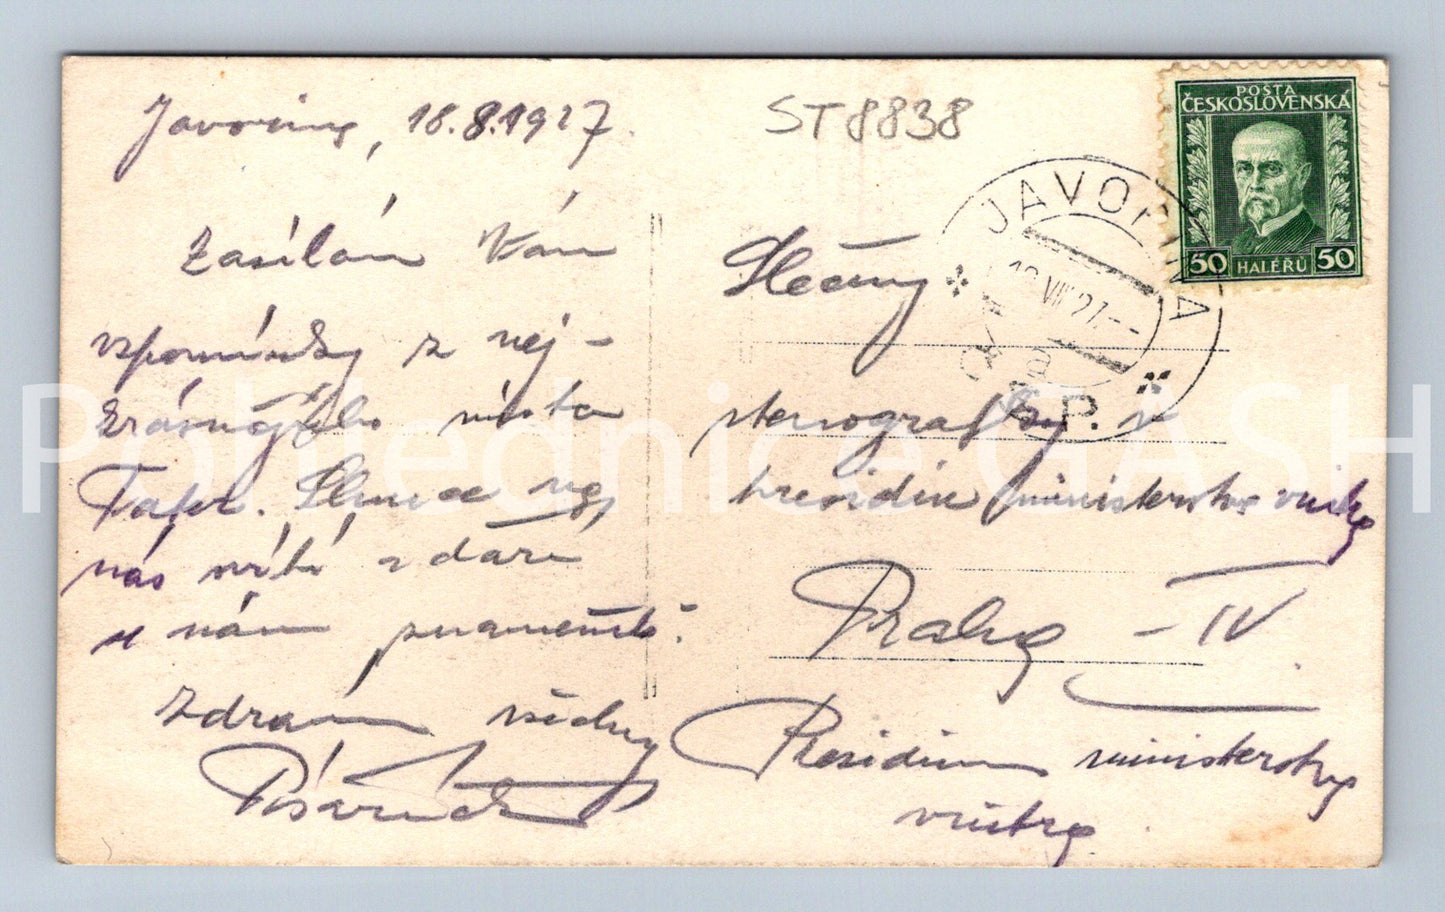 Javorina, 18.8.1927.
ST8838
POŠTA
ČESKOSLOVENSKÁ
50 HALÉŘŮ 50
JAVORINA
18 VIII 27
Zasílám Vám
vzpomínky z nej-
krásnějšího místa
Tater. Slunce
nás a daří
se nám znamenitě.
Zdravím všechny
Slečny
stenografky v
presidiu ministerstva vnitra
Praha - IV
Presidium ministerstva
vnitra
Pohlednice GASH